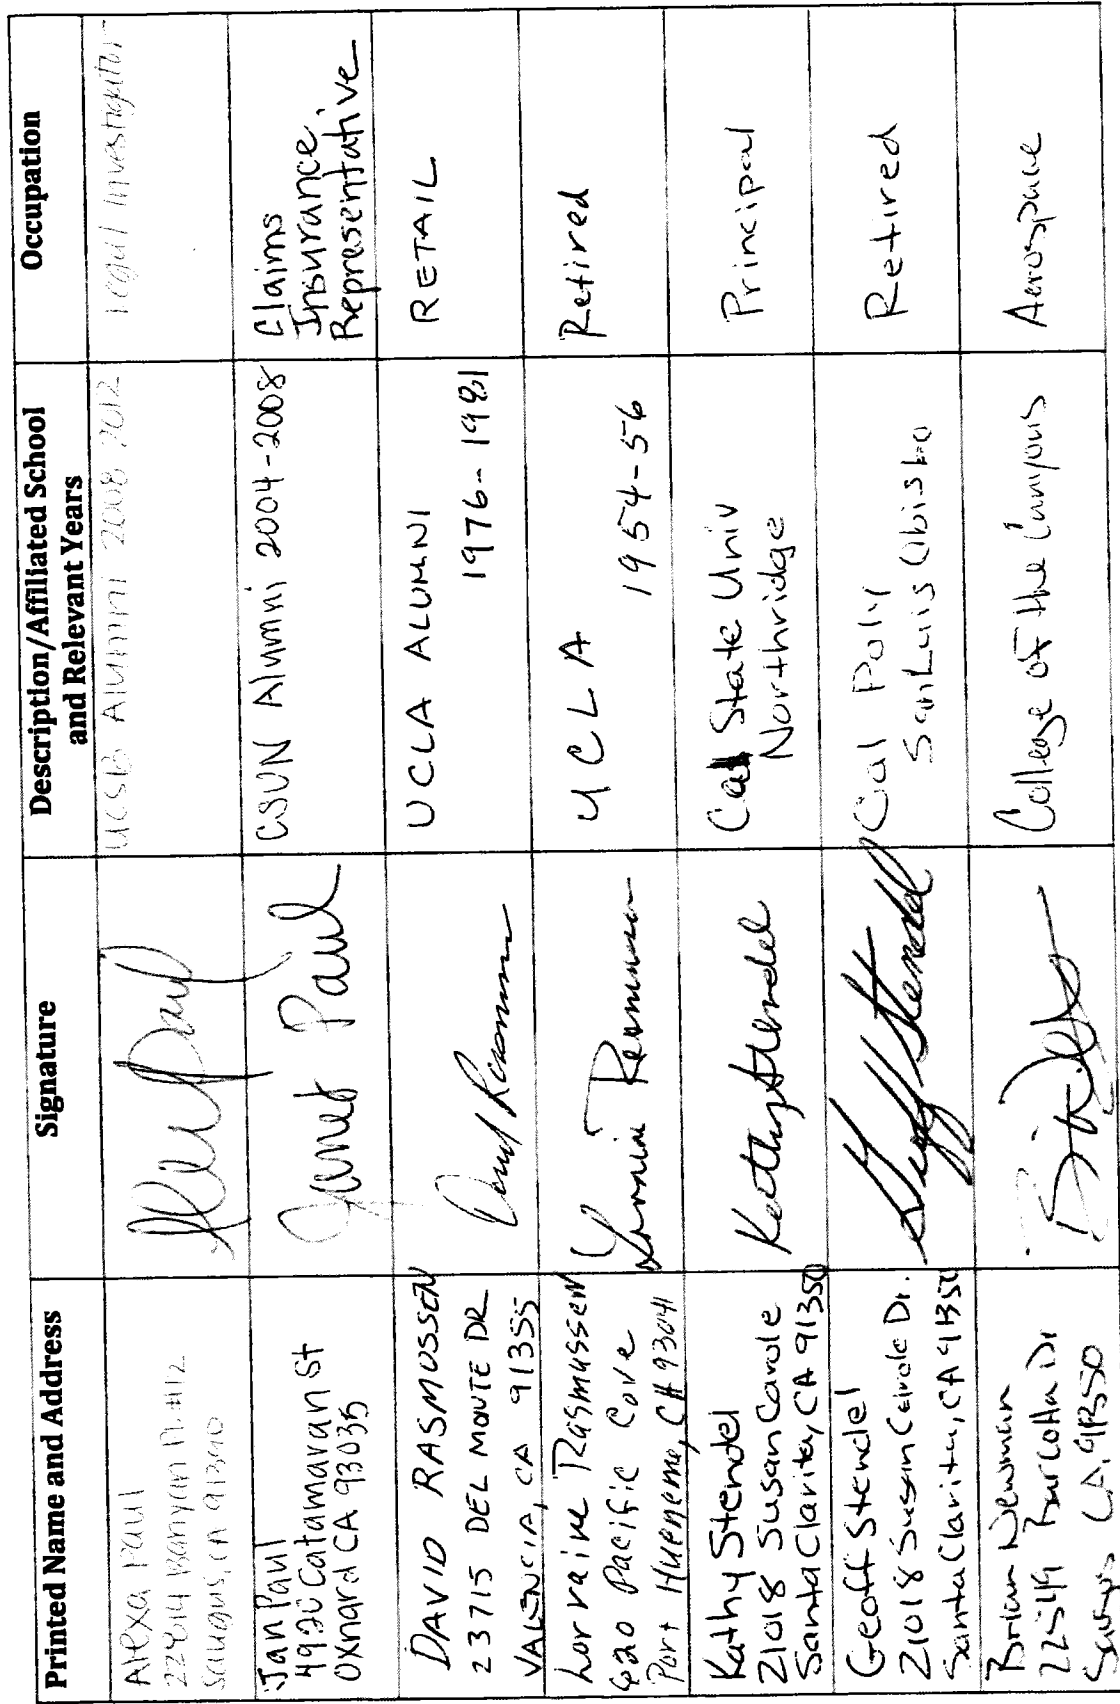 Printed Name and Address
Signature
Description/Affiliated School
and Relevant Years
Occupation
Alexa Paul
Banyan Pl #12
Saugus, CA
Alexa Paul
UCSB Alumni 2008 2012
legal investigator
Jan Paul
4920 Catamaran St
Oxnard CA 93035
Janet Paul
CSUN Alumni 2004-2008
Claims
Insurance
Representative
DAVID RASMUSSEN
23715 DEL MONTE DR
VALENCIA, CA 91355
UCLA ALUMNI
1976-1981
RETAIL
Lorraine Rasmussen
Pacific Cove
Port Hueneme, CA 93041
UCLA
1954-56
Retired
Kathy Stendel
21018 Susan Carole
Santa Clarita, CA 91350
Kathy Stendel
Cal State Univ
Northridge
Principal
Geoff Stendel
21018 Susan Circle Dr.
Santa Clarita, CA 91350
Geoff Stendel
Cal Poly
San Luis Obisbo
Retired
Brian Newman
Dr
Saugus CA 91350
College of the Canyons
Aerospace